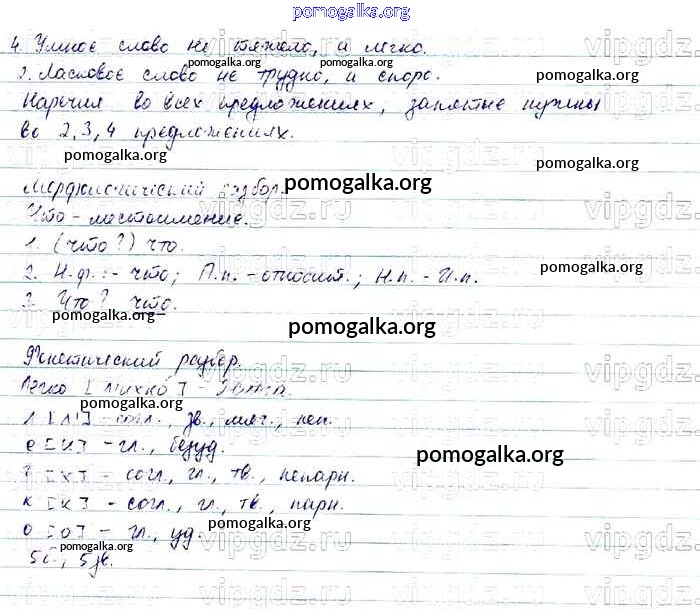 pomogalka.org
4. Умное слово не тяжело, и легко.
pomogalka.org pomogalka.org
3. Ласковое слово не трудно, и споро.
pomogalka.org
Наречия во всех предложениях, запятые нужны
во 2, 3, 4 предложениях.
pomogalka.org
pomogalka.org
Морфологический разбор.
pomogalka.org
Что - местоимение.
1. (что?) что.
2. Н.ф. - что; П.п. - относит.; Н.п. - И.п.
pomogalka.org
3. Что? что.
pomogalka.org
pomogalka.org
Фонетический разбор.
Легко [л'ихко́] -
pomogalka.org
л [л'] - согл., зв., мяг., неп.
е [и] - гл., безуд.
pomogalka.org
г [х] - согл., гл., тв., непарн.
к [к] - согл., гл., тв., парн.
pomogalka.org
о [о] - гл., уд.
pomogalka.org
5 б., 5 зв.
vipgdz.ru